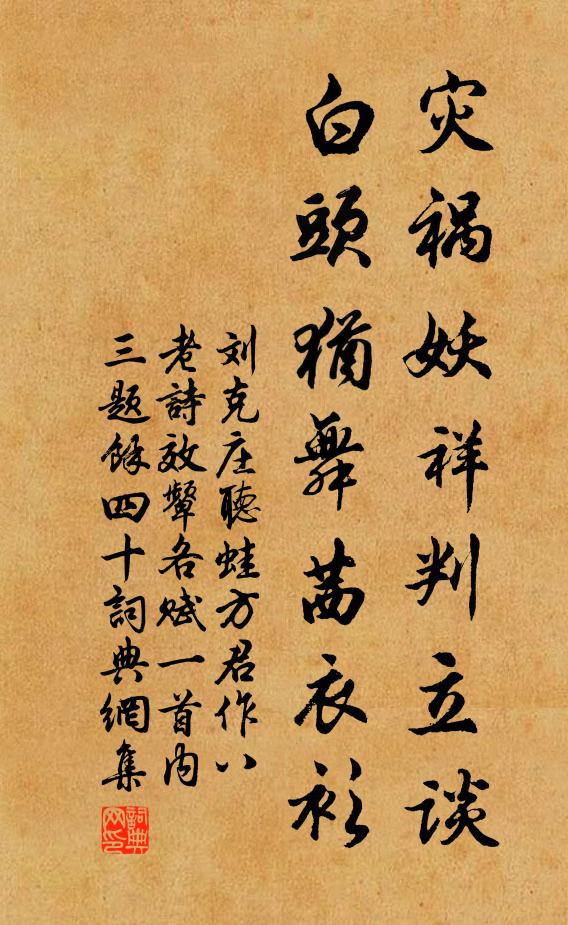 灾祸妖祥判立谈
白頭猶舞茜衣衫
刘克庄聽蛙方君作八
老詩效颦各赋一首内
三题餘四十詞典網集
詞典网印